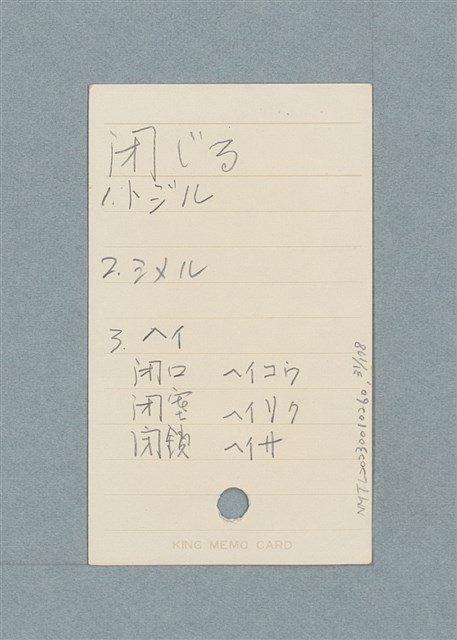 閉じる
1. トジル
2. シメル
3. ヘイ
閉口 ヘイコウ
閉塞 ヘイソク
閉鎖 ヘイサ
KING MEMO CARD
NMTL20230010260, 31/178